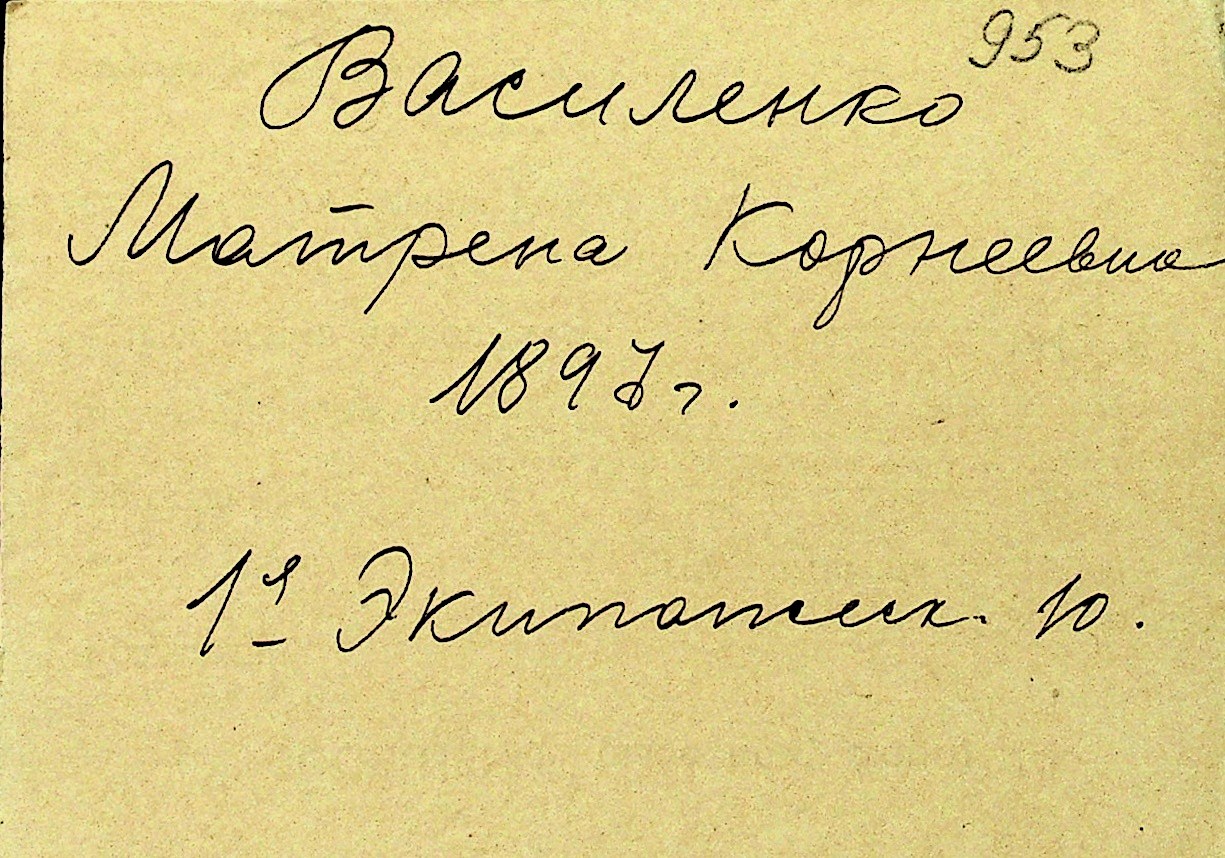 953
Василенко
Матрена Корнеевна
1897г.
1я Экипажск. 10.